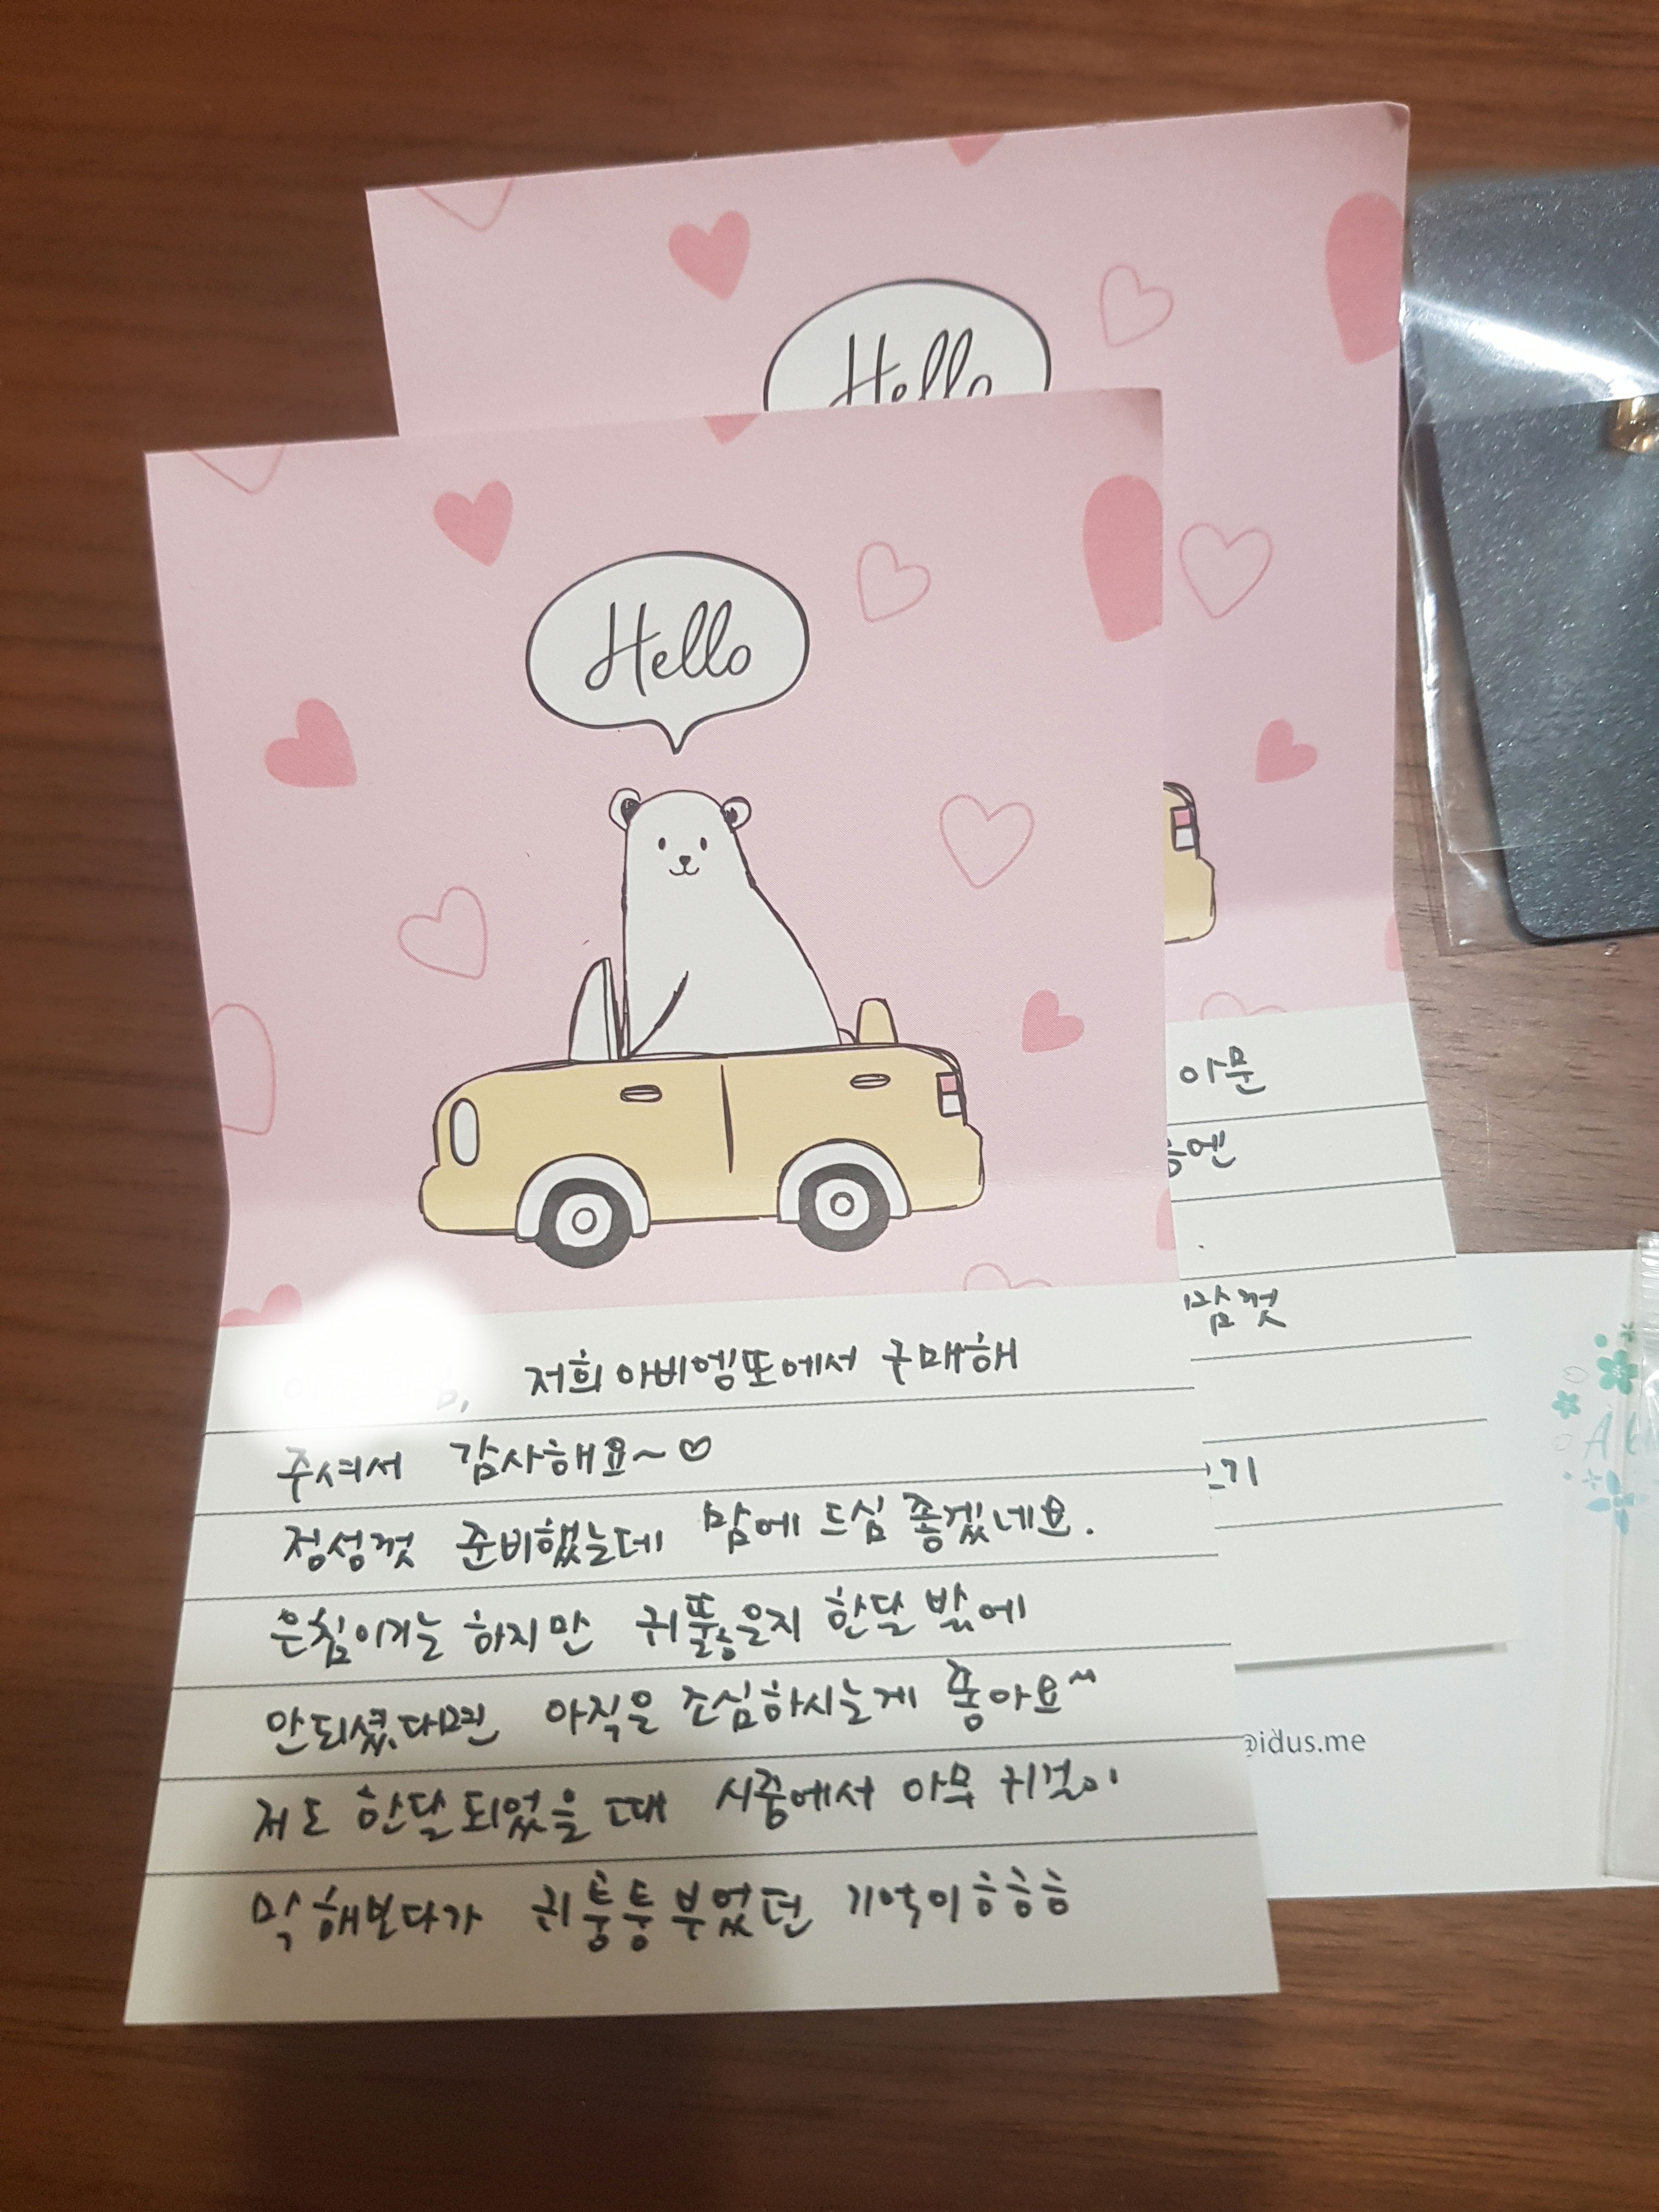 Hello
Hello
저희 아비엠또에서 구매해
주셔서 감사해요~♡
정성껏 준비했는데 맘에 드심 좋겠네요.
은침이기는 하지만 귀뚫은지 한달 밖에
안되셨다면 아직은 조심하시는게 좋아요^^
저도 한달 되었을 때 시중에서 아무 귀걸이
막 해보다가 귀퉁퉁 부었던 기억이 흐흐흐
아문
맘껏
@idus.me